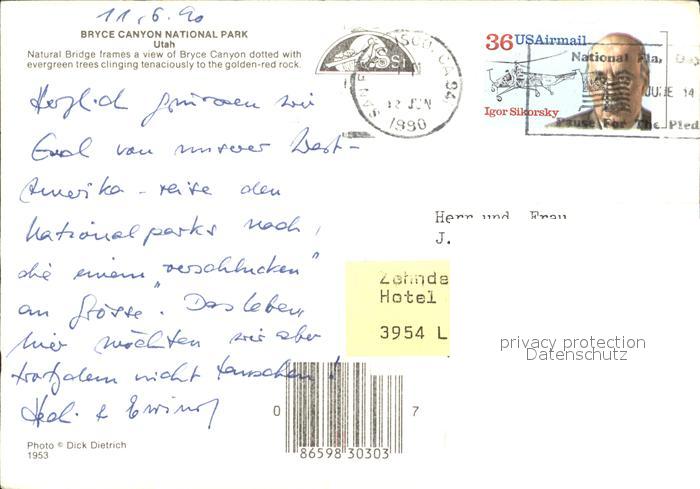 11.6.90
BRYCE CANYON NATIONAL PARK
Utah
Natural Bridge frames a view of Bryce Canyon dotted with
evergreen trees clinging tenaciously to the golden-red rock.
Herzlich grüssen wir
Euch von unserer West-
Amerika-reise den
Nationalparks nach,
die einem "verschlucken"
an Grösse. Das Leben
hier möchten wir aber
trotzdem nicht tauschen!
& Erwin
Photo © Dick Dietrich
1953
SAN CA 94
12 JUN
1990
36 USAirmail
Igor Sikorsky
National Day
JUNE 14
Pause For The Pled
Herr und Frau
J.
Zehnde
Hotel
3954 L
privacy protection
Datenschutz
0 7
86598 30303